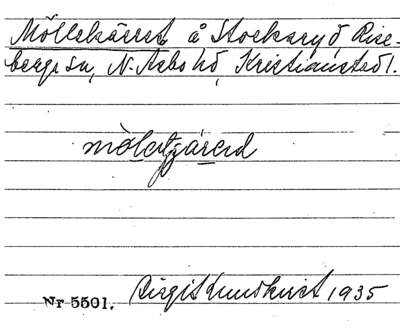 Möllekärret å Stockaryd, Rise-
berga sn, N. Åsbo hd, Kristianstads l.
Nr 5501. Birgit Lundkvist 1935